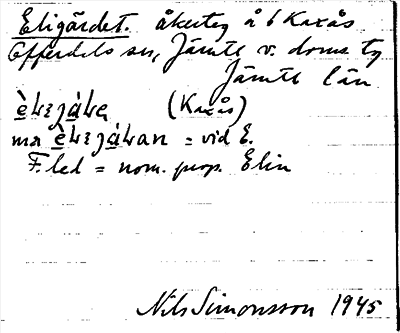 Eligärdet. åkerteg å 6 Kaxås
Offerdals sn, Jämtl. v. doms tg
Jämtl län
(Kaxås)
ma = vid E.
F.led = nom. prop. Elin
Nils Simonsson 1945